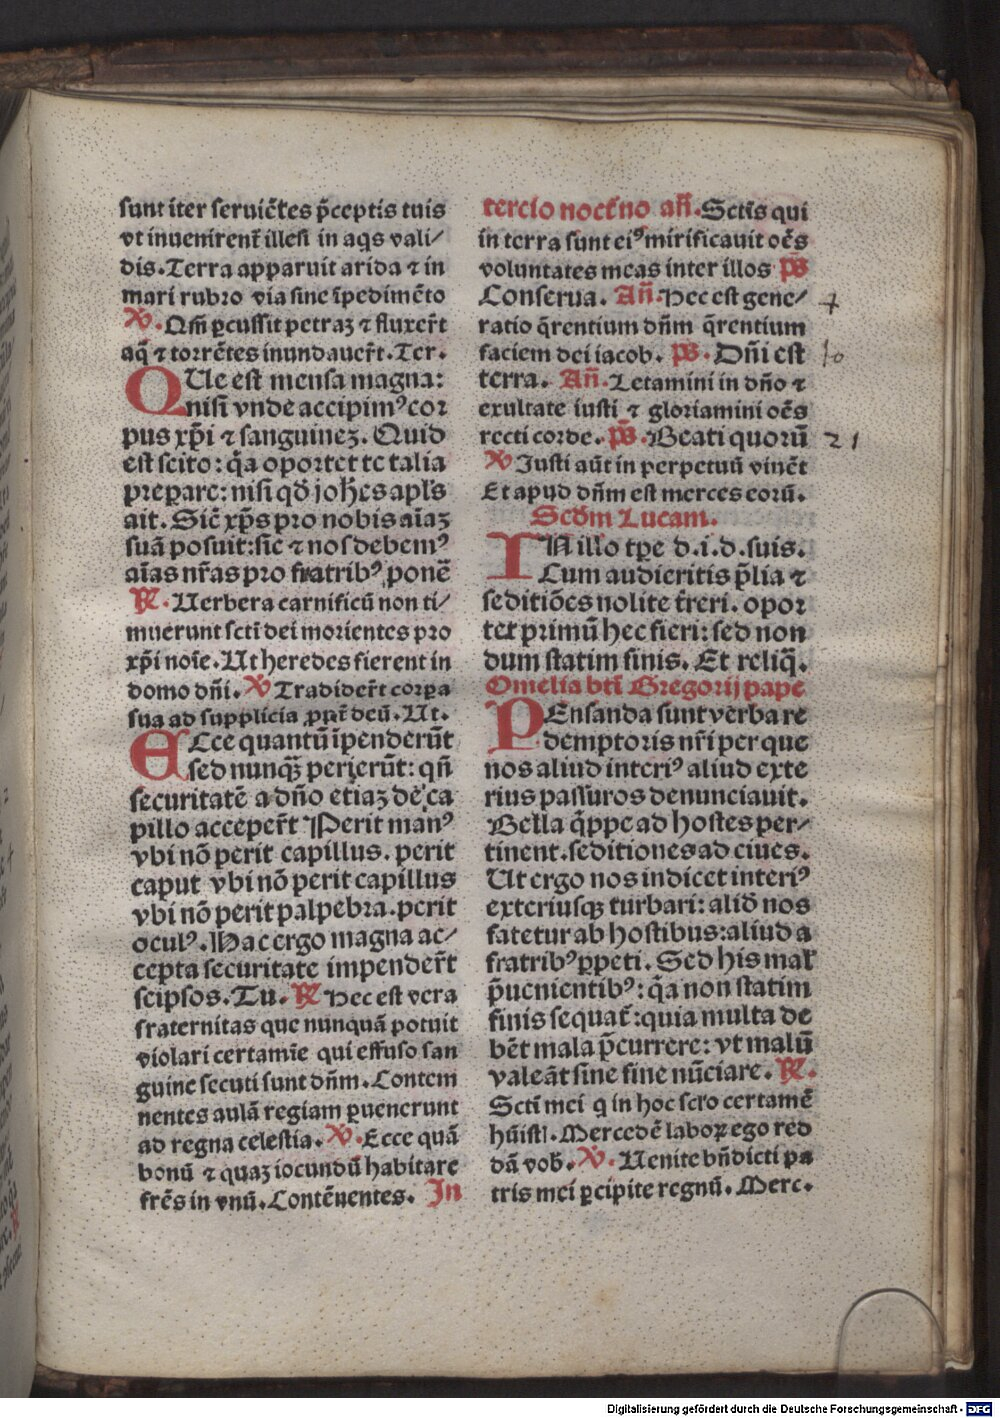 sunt iter seruiẽtes p̃ceptis tuis
vt inuenirent̃ illesi in aq̃s vali/
dis. Terra apparuit arida ⁊ in
mari rubro via sine ĩpedimẽto
℣. Qm̃ ꝑcussit petraꝫ ⁊ fluxer̃t
aq̃ ⁊ torrẽtes inundauer̃t. Ter.
QUe est mensa magna:
nisi vnde accipimꝰ cor
pus xp̃i ⁊ sanguineꝫ. Quid
est scito: q̃a oportet te talia
preparare: nisi qđ joh̃es apl̃s
ait. Sic̃ xp̃s pro nobis aĩaꝫ
suã posuit: sic̃ ⁊ nos debemꝰ
aĩas nr̃as pro fratribꝰ ponẽ
℟. Uerbera carnificũ non ti/
muerunt scti̅ dei morientes pro
xp̃i noĩe. Ut heredes fierent in
domo dñi. ℣ Tradider̃t corpa
sua ad supplicia ꝓpt̃ deũ. Ut.
ECce quantũ ĩpenderũt
sed nunqꝫ̃ perierũt: qñ
securitatẽ a dño etiaꝫ de ca
pillo acceper̃t Perit manꝰ
vbi nõ perit capillus. perit
caput vbi nõ perit capillus
vbi nõ perit palpebra. perit
oculꝰ. Hac ergo magna ac/
cepta securitate impender̃t
seipsos. Tu. ℟ Hec est vera
fraternitas que nunquã potuit
violari certamĩe qui effuso san
guine secuti sunt dñm. Contem
nentes aulã regiam ꝑuenerunt
ad regna celestia. ℣. Ecce quã
bonũ ⁊ quaꝫ iocundũ habitare
fr̃es in vnũ. Contẽnentes. In
tercio noct̃no añ. Sctĩs qui
in terra sunt eiꝰ mirificauit oẽs
voluntates meas inter illos p̃s
Conserua. Añ. Hec est gene/
ratio q̃rentium dñm q̃rentium
faciem dei iacob. p̃s. Dñi est
terra. Añ. Letamini in dño ⁊
exultate iusti ⁊ gloriamini oẽs
recti corde. p̃s. Beati quorũ 21
℣ Justi aũt in perpetuũ viuẽt
Et apud dñm est merces eorũ.
Scđm Lucam.
IN illo tp̃e d. i. d. suis.
Cum audieritis p̃lia ⁊
seditiões nolite t̃reri. opor
tet primũ hec fieri: sed non
dum statim finis. Et reliq̃.
Omelia bt̃i Gregorij pape
PEnsanda sunt verba re
demptoris nr̃i per que
nos aliud interiꝰ aliud exte
rius passuros denunciauit.
Bella q̃ppe ad hostes per/
tinent. seditiones ad ciues.
Ut ergo nos indicet interiꝰ
exteriusqꝫ turbari: aliđ nos
fatetur ab hostibus: aliud a
fratribꝰ ꝑpeti. Sed his mal̃
p̃uenientibꝰ: q̃a non statim
finis sequat̃: quia multa de
bẽt mala p̃currere: vt malũ
valeãt sine fine nũciare. ℟.
Scti̅ mei q̃ in hoc scl̃o certamẽ
hũistĩ. Mercedẽ laboꝝ ego red
dã vob̃. ℣. Uenite bñdicti pa
tris mei ꝑcipite regnũ. Merc.
Digitalisierung gefördert durch die Deutsche Forschungsgemeinschaft - DFG